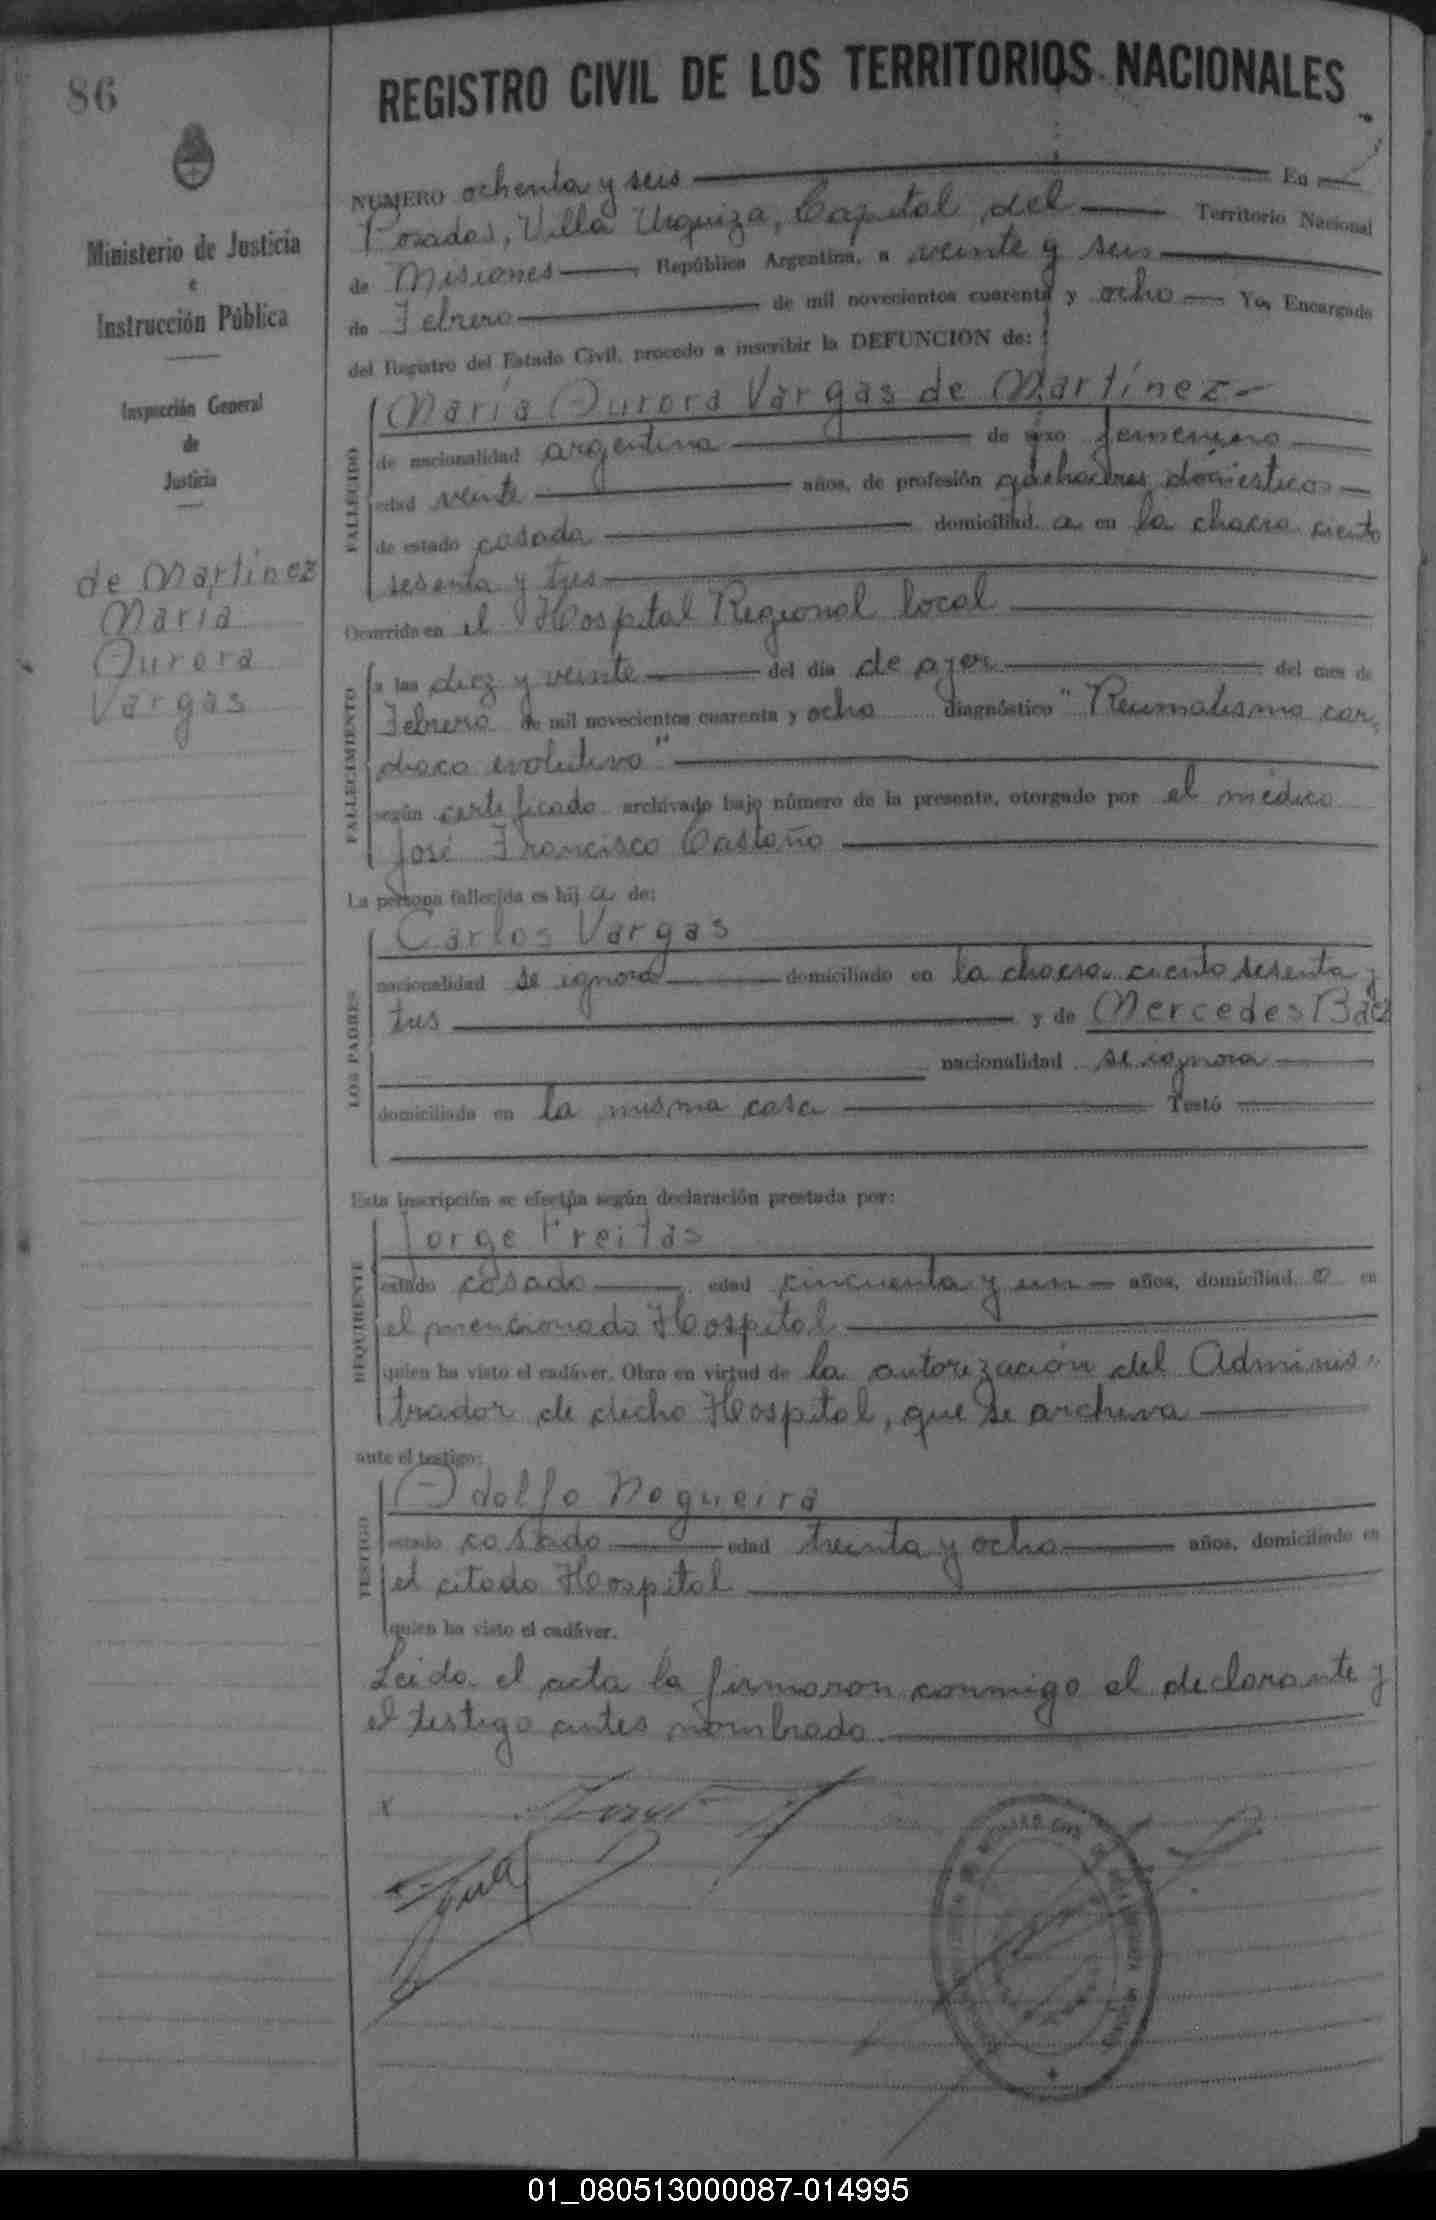 86
REGISTRO CIVIL DE LOS TERRITORIOS NACIONALES
Ministerio de Justicia
e
Instrucción Pública
Inspección General
de
Justicia
de Martínez
María
Aurora
Vargas
NUMERO ochenta y seis En
Posadas, Villa Urquiza, Capital del Territorio Nacional
de Misiones, República Argentina, a veinte y seis
de Febrero de mil novecientos cuarenta y ocho Yo, Encargado
del Registro del Estado Civil, procedo a inscribir la DEFUNCION de:
FALLECIDO
María Aurora Vargas de Martínez
de nacionalidad argentina de sexo femenino
edad veinte años, de profesión quehaceres domésticos
de estado casada domiciliad a en la chacra ciento
sesenta y tres
Ocurrida en el Hospital Regional local
FALLECIMIENTO
a las diez y veinte del día de ayer del mes de
Febrero de mil novecientos cuarenta y ocho diagnóstico "Reumatismo car-
díaco evolutivo"
según certificado archivado bajo número de la presente, otorgado por el médico
José Francisco Castaño
La persona fallecida es hij a de:
LOS PADRES
Carlos Vargas
nacionalidad se ignora domiciliado en la chacra ciento sesenta y
tres y de Mercedes Baez
nacionalidad se ignora
domiciliada en la misma casa Testó
Esta inscripción se efectúa según declaración prestada por:
REQUIRENTE
Jorge Freitas
estado casado edad cincuenta y un años, domiciliad o en
el mencionado Hospital
quien ha visto el cadáver. Obra en virtud de la autorización del Adminis-
trador de dicho Hospital, que se archiva
ante el testigo:
TESTIGO
Adolfo Nogueira
estado casado edad treinta y ocho años, domiciliado en
el citado Hospital
quien ha visto el cadáver.
Leida el acta la firmaron conmigo el declarante y
el testigo antes nombrado
01_080513000087-014995